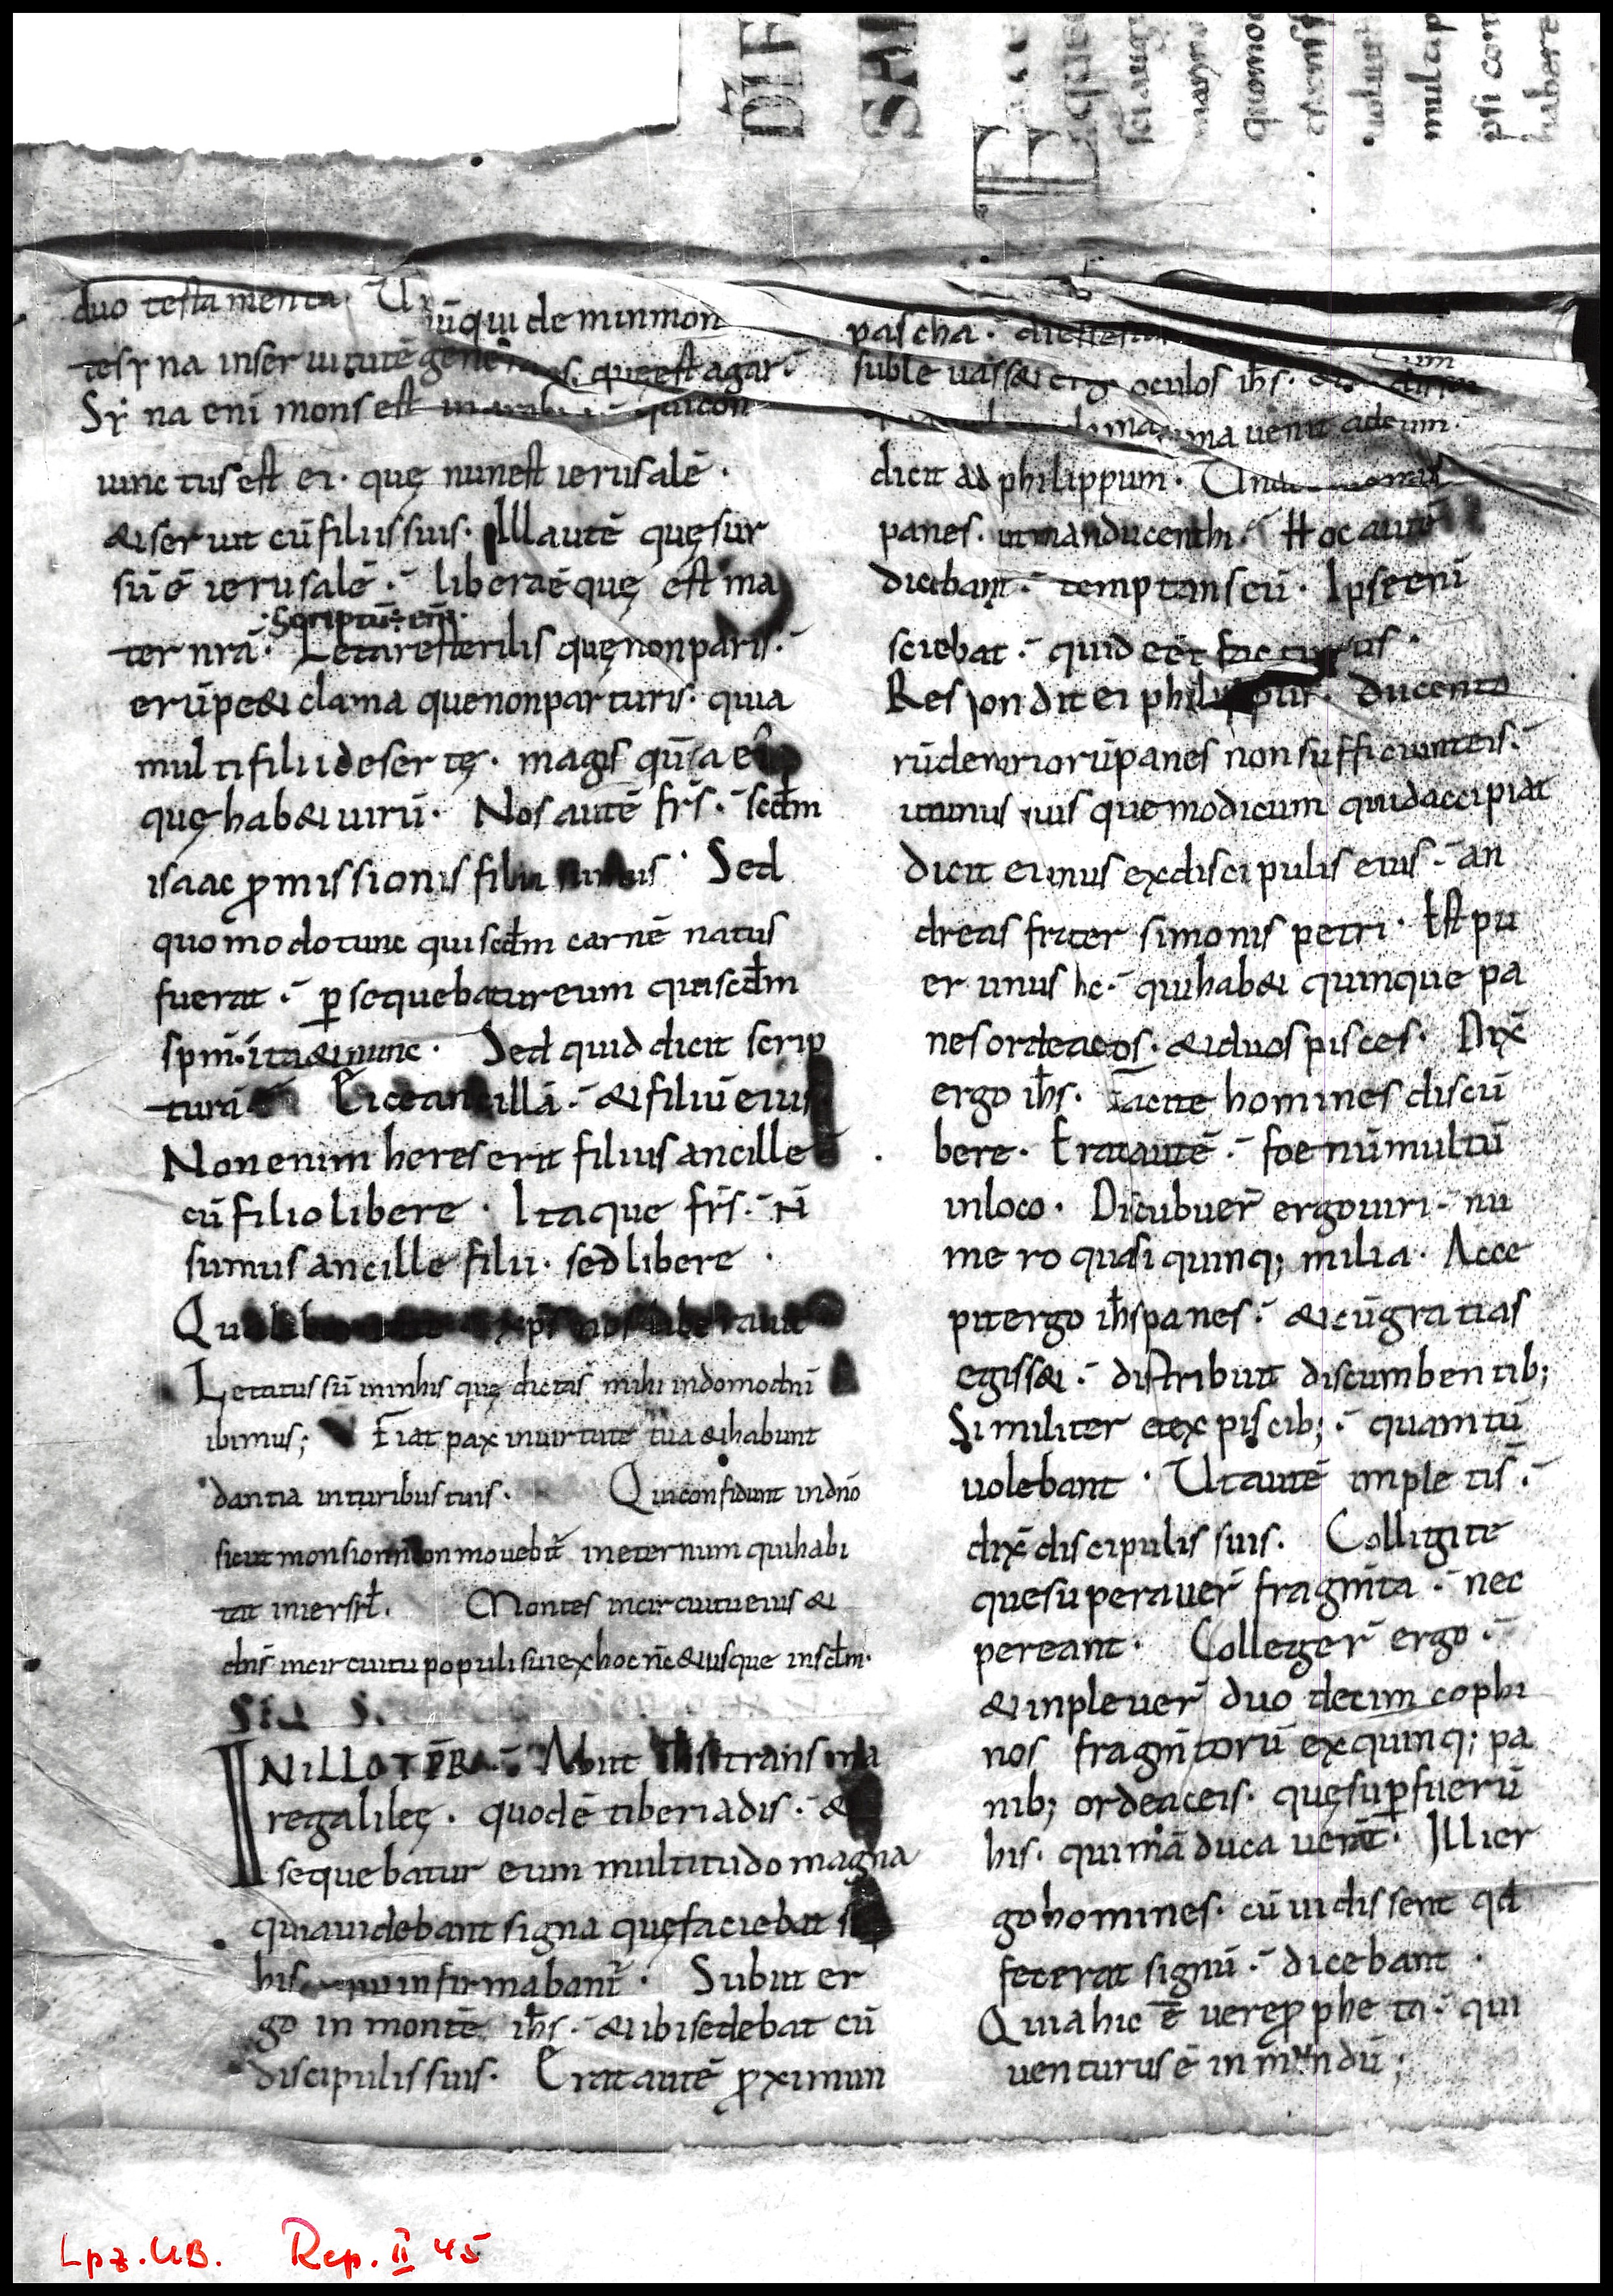 DI F
SAI
E
mulap
psi con
iubere
quomo
duo testamenta· Un
ūqui de minmon
tesyna inseruitutē gene quęest agar·
Syna eni mons est
iunctusest ei· quę nunest ierusalē·
&iseruit cūfiliissuis· Illautē quęsur
sūē ierusalē· liberaēquę est ma
·Scriptū÷eni·
ter nrā· Letaresterilis quęnonparis·
erūpe&clama quenonparturis· quia
multifiliideserte· magis quā
quęhab&uirū· Nosautē frs̄· scdm̄
isaac ꝓmissionis filii sumus· Sed
quomodotunc quiscdm̄ carnē natus
fuerat· ꝑsequebatureum quiscdm̄
spm̄·ita&nunc· Sed quid dicit scrip
tura Eiceancillā· &filiūeius
Nonenim hereserit filius ancille
cūfiliolibere· Itaque frs̄· n̄
sumusancille filii· sedlibere·
Qu xp̄s nosliberauit
Letatus sū inhis quę dictas mihi indomodnī
ibimus; Fiat pax inuirtute tua &habunt
dantia inturibustuis· Quiconfidunt indnō
sicutmonsionnonmouebit̄ ineternum quihabi
tat iniersrl̄· Montes incircuitueius &
dns̄ incircuitupopulisuiexhocnc̄&usque inscl̄m·
INILLOTPR̄A· Abiit ihs̄trans ma
regalileę· quodē tiberiadis· &
sequebatur eum multitudo magna
quiauidebantsigna quęfaciebat s
his quiinfirmabant̄· Subiit er
go in montē ihs̄· &ibisedebat cū
discipulissuis· Eratautē ꝓximum
pascha· diesfestu
subleuass& ergo oculos ihs̄·
ma uenit adeum·
dicit ad philippum· Und
panes· utmanducenthi· Hoc autē
dicebant· temptanseū· Ipseeni
sciebat· quid eēt facturus·
Respondit ei philippus· Ducento
rūdenariorūpanes nonsufficiunteis·
utunus uis quemodicum quidaccipiat
dicit eiunus exdiscipulis eius· an
dreas frater simonis petri· Estpu
er unus hc· quihab& quinque pa
nesordeaceos· &duos pisces· Dix̄
ergo ihs̄· Facite homines discū
bere· Eratautē· foenūmultū
inloco· Discubuer̄ ergouiri· nu
mero quasi quinq; milia· Acce
pitergo ihs̄panes· &cūgratias
egiss&· distribuit discumbentib;
Similiter etex piscib;· quamtū
uolebant· Utautē impletis·
dix̄discipulis suis· Colligite
quesuperauer̄ fragmīta· nec
pereant· Colleger̄ ergo·
&inpleuer̄ duodecim cophi
nos fragmītorū exquinq; pa
nib; ordeaceis· quęsuꝑfuerū
his· quimāducauerūt· Illier
gohomines· cūuidissent qd̄
fecerat signū· dicebant·
Quiahic ē uereꝓpheta· qui
uenturusē in mundū;
Lpz. UB. Rep. II 45